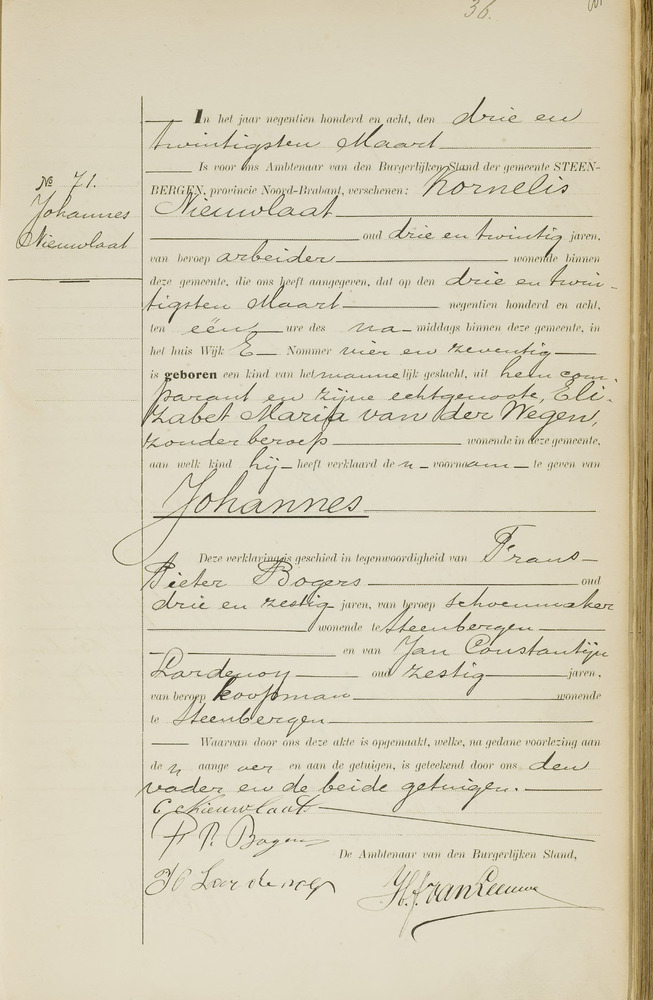 36.
No 71.
Johannes
Nieuwlaat
In het jaar negentien honderd en acht, den drie en
twintigsten Maart
Is voor ons Ambtenaar van den Burgerlijken Stand der gemeente STEEN-
BERGEN, provincie Noord-Brabant, verschenen: Kornelis
Nieuwlaat
oud drie en twintig jaren,
van beroep arbeider wonende binnen
deze gemeente, die ons heeft aangegeven, dat op den drie en twin-
tigsten Maart negentien honderd en acht,
ten één ure des na- middags binnen deze gemeente, in
het huis Wijk E Nommer vier en zeventig
is geboren een kind van het mannelijk geslacht, uit hem com-
parant en zijne echtgenoote, Eli-
zabet Maria van der Wegen,
zonder beroep wonende in deze gemeente,
aan welk kind hij heeft verklaard den voornaam te geven van
Johannes
Deze verklaring is geschied in tegenwoordigheid van Frans
Pieter Bogers oud
drie en zestig jaren, van beroep schoenmaker
wonende te Steenbergen
en van Jan Constantijn
Lordenoy oud zestig jaren,
van beroep koopman wonende
te Steenbergen
Waarvan door ons deze akte is opgemaakt, welke, na gedane voorlezing aan
den aangever en aan de getuigen, is geteekend door ons den
vader en de beide getuigen.
C Nieuwlaat
F P. Bogers
De Ambtenaar van den Burgerlijken Stand,
H. J. van Leeuwe